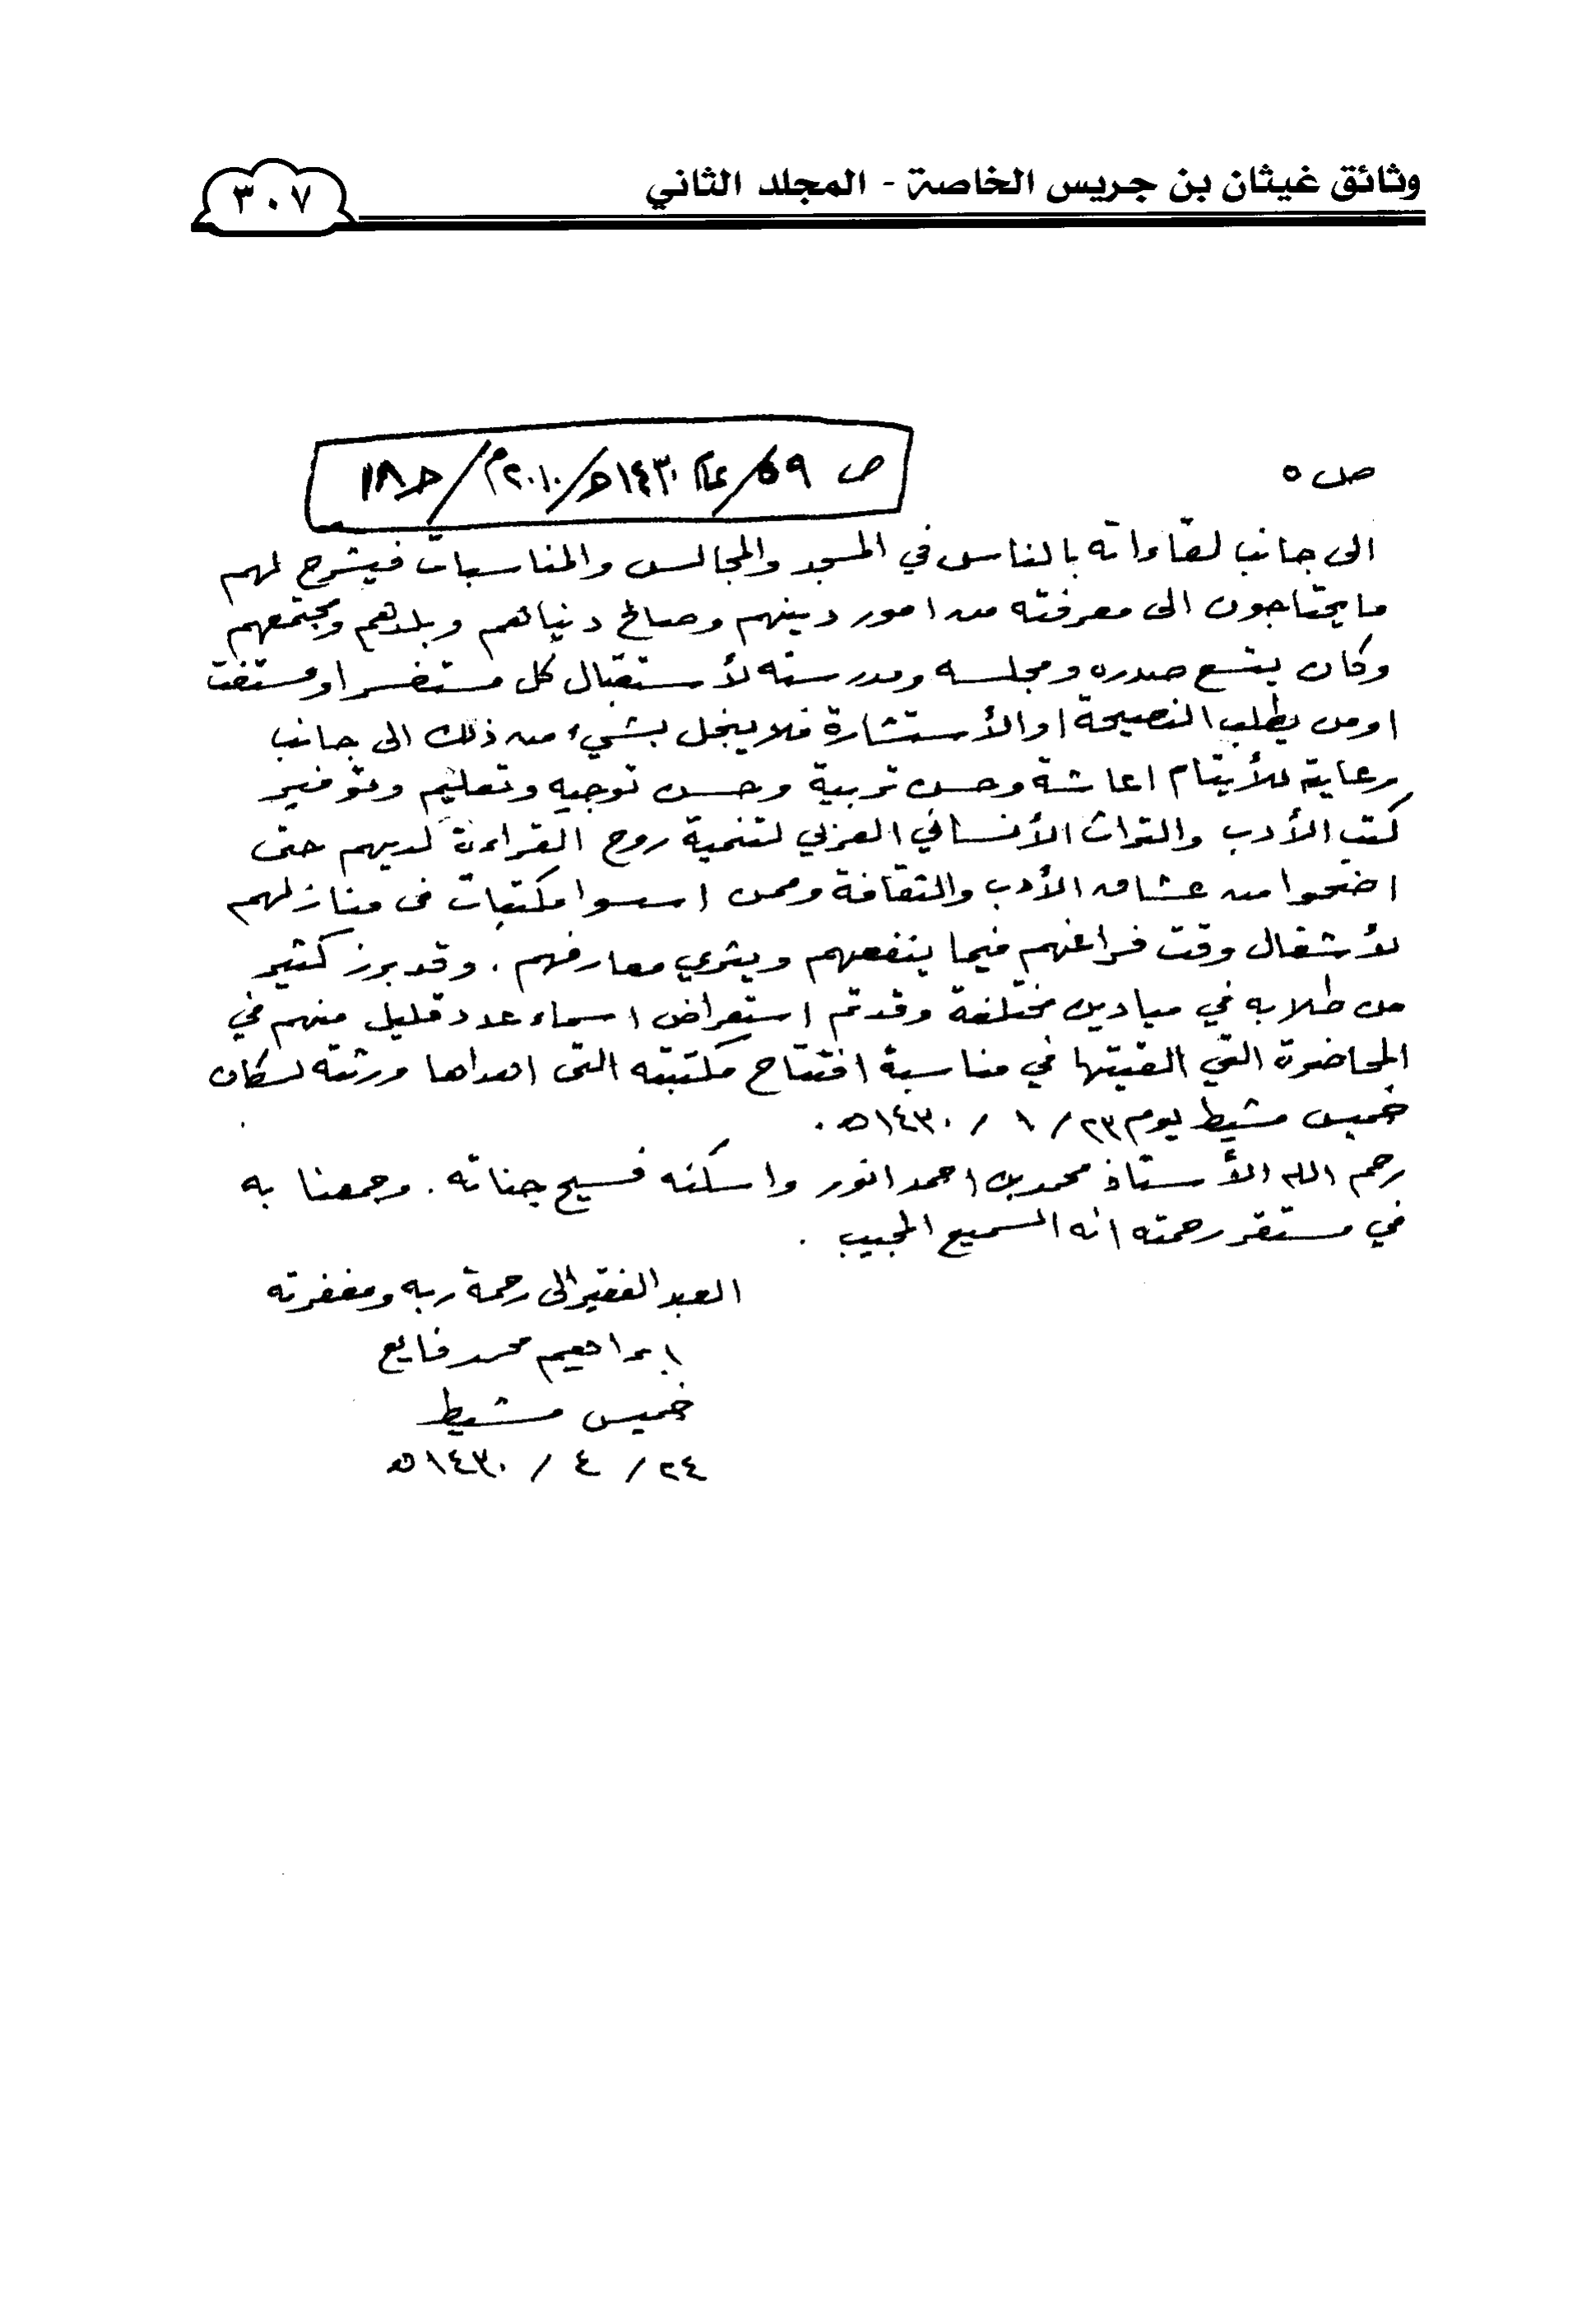 وثائق غيثان بن جريس الخاصة - المجلد الثاني
٣٠٧
ص ٥٩ / عام ١٤٣٠هـ / ٢٠١٠م / حـ ١٨
ص ٥
الى جانب لقاءاته بالناس في المسجد والمجالس والمناسبات فيشرح لهم
ما يحتاجون الى معرفته من امور دينهم وصالح دنياهم وبلدهم ومجتمعهم
وكان يتسع صدره ومجلسه ومدرسته لأستقبال كل مستفسر او مستفت
او من يطلب النصيحة او الأستشارة فلا يبخل بشيء من ذلك الى جانب
رعاية للأيتام اعاشة وحسن تربية وحسن توجيه وتعليم وتوفير
كتب الأدب والتراث الأنساني العربي لتنمية روح القراءة لديهم حتى
اضحوا من عشاق الأدب والثقافة وممن اسسوا مكتبات في منازلهم
لأشغال وقت فراغهم فيما ينفعهم ويثري معارفهم . وقد برز كثير
من طلابه في ميادين مختلفة وقد تم استعراض اسماء عدد قليل منهم في
المحاضرة التي القيتها في مناسبة افتتاح مكتبته التي اهداها ورثته لسكان
خميس مشيط يوم ٢٣ / ١ / ١٤٣٠هـ .
رحم الله الأستاذ محمد بن احمد انور واسكنه فسيح جناته . وجمعنا به
في مستقر رحمته انه السميع المجيب .
العبد الفقير الى رحمة ربه ومغفرته
ابراهيم محمد فايع
خميس مشيط
٢٤ / ٤ / ١٤٣٠هـ